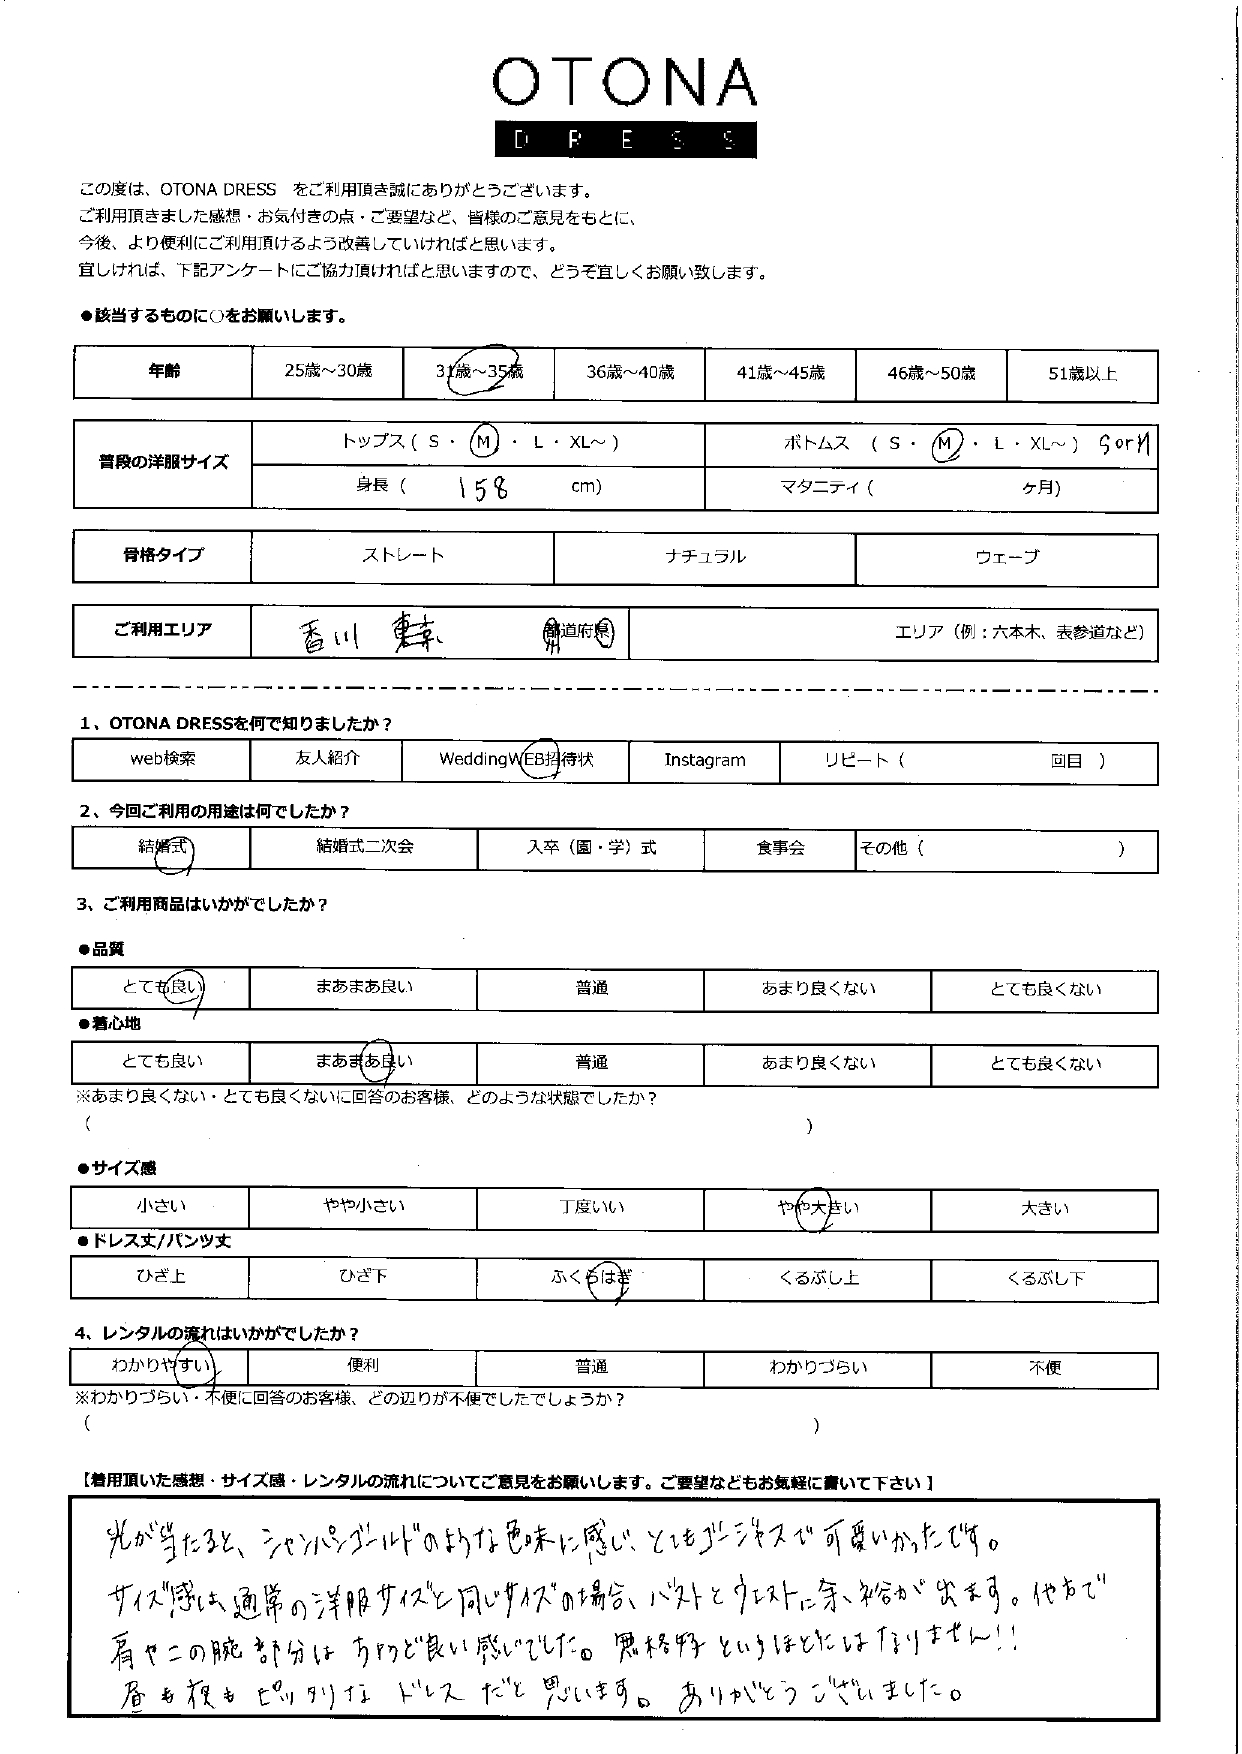 OTONA
DRESS
この度は、OTONA DRESS　をご利用頂き誠にありがとうございます。
ご利用頂きました感想・お気付きの点・ご要望など、皆様のご意見をもとに、
今後、より便利にご利用頂けるよう改善していければと思います。
宜しければ、下記アンケートにご協力頂ければと思いますので、どうぞ宜しくお願い致します。
●該当するものに○をお願いします。
年齢 25歳～30歳 31歳～35歳 36歳～40歳 41歳～45歳 46歳～50歳 51歳以上
普段の洋服サイズ トップス ( S ・ M ・ L ・ XL～ ) ボトムス ( S ・ M ・ L ・ XL～ ) S or M
身長 ( 158 cm) マタニティ ( ヶ月)
骨格タイプ ストレート ナチュラル ウェーブ
ご利用エリア 香川 東京 都道府県 エリア（例：六本木、表参道など）
1、OTONA DRESSを何で知りましたか？
web検索 友人紹介 WeddingWEB招待状 Instagram リピート ( 回目 )
2、今回ご利用の用途は何でしたか？
結婚式 結婚式二次会 入卒（園・学）式 食事会 その他 ( )
3、ご利用商品はいかがでしたか？
●品質
とても良い まあまあ良い 普通 あまり良くない とても良くない
●着心地
とても良い まあまあ良い 普通 あまり良くない とても良くない
※あまり良くない・とても良くないに回答のお客様、どのような状態でしたか？
( )
●サイズ感
小さい やや小さい 丁度いい やや大きい 大きい
●ドレス丈/パンツ丈
ひざ上 ひざ下 ふくらはぎ くるぶし上 くるぶし下
4、レンタルの流れはいかがでしたか？
わかりやすい 便利 普通 わかりづらい 不便
※わかりづらい・不便に回答のお客様、どの辺りが不便でしたでしょうか？
( )
【着用頂いた感想・サイズ感・レンタルの流れについてご意見をお願いします。ご要望などもお気軽に書いて下さい】
光が当たると、シャンパンゴールドのような色味に感じ、とてもゴージャスで可愛いかったです。
サイズ感は通常の洋服サイズと同じサイズの場合、バストとウエストに余裕が出ます。代わりで
肩や二の腕部分はちょうど良い感じでした。不格好というほどにはなりません!!
昼も夜もピッタリなドレスだと思います。ありがとうございました。